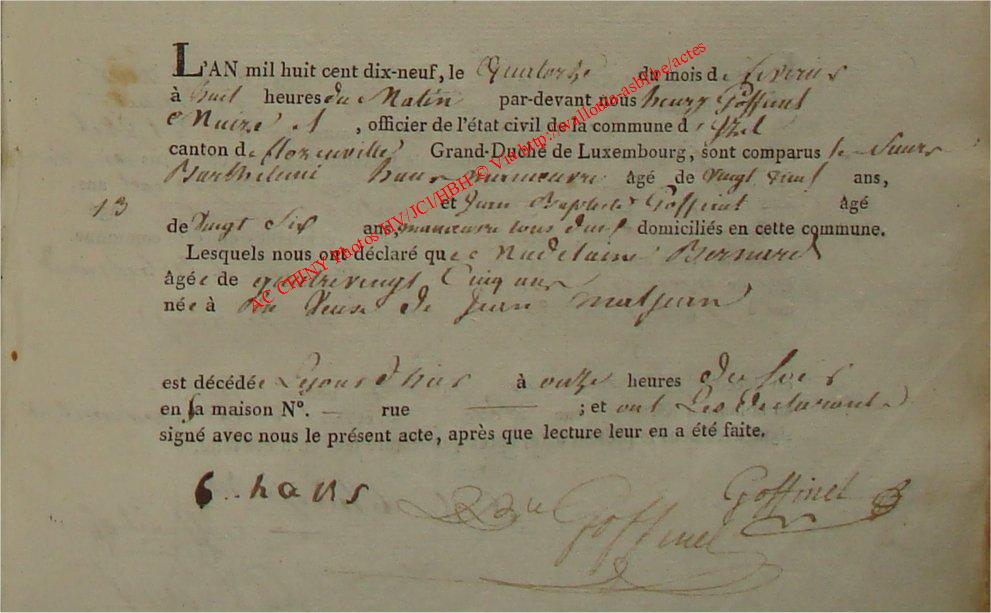 L'AN mil huit cent dix-neuf, le Quatorze du mois de fevrier
à huit heures du Matin par-devant nous henry Goffinet
Maire et, officier de l'état civil de la commune d'Izel
canton de florenville Grand-Duché de Luxembourg, sont comparus le Sieurs
Barthelemi haus manoeuvre âgé de vingt neuf ans,
13 et Jean Baptiste Goffinet âgé
de vingt Six ans, manoeuvre tous deux domiciliés en cette commune.
Lesquels nous ont déclaré que Madelaine Bernard
âgée de quatrevengt Cinq ans
née à Veuve de Jean maljean
est décédée Lejourdhier à onze heures du soir
en sa maison N°. — rue — ; et ont Les declarants
signé avec nous le présent acte, après que lecture leur en a été faite.
haus Goffinet
Goffinet
AC CHINY Photos MV/JCl/HBH © Via http://wallonia-asbl.be/actes